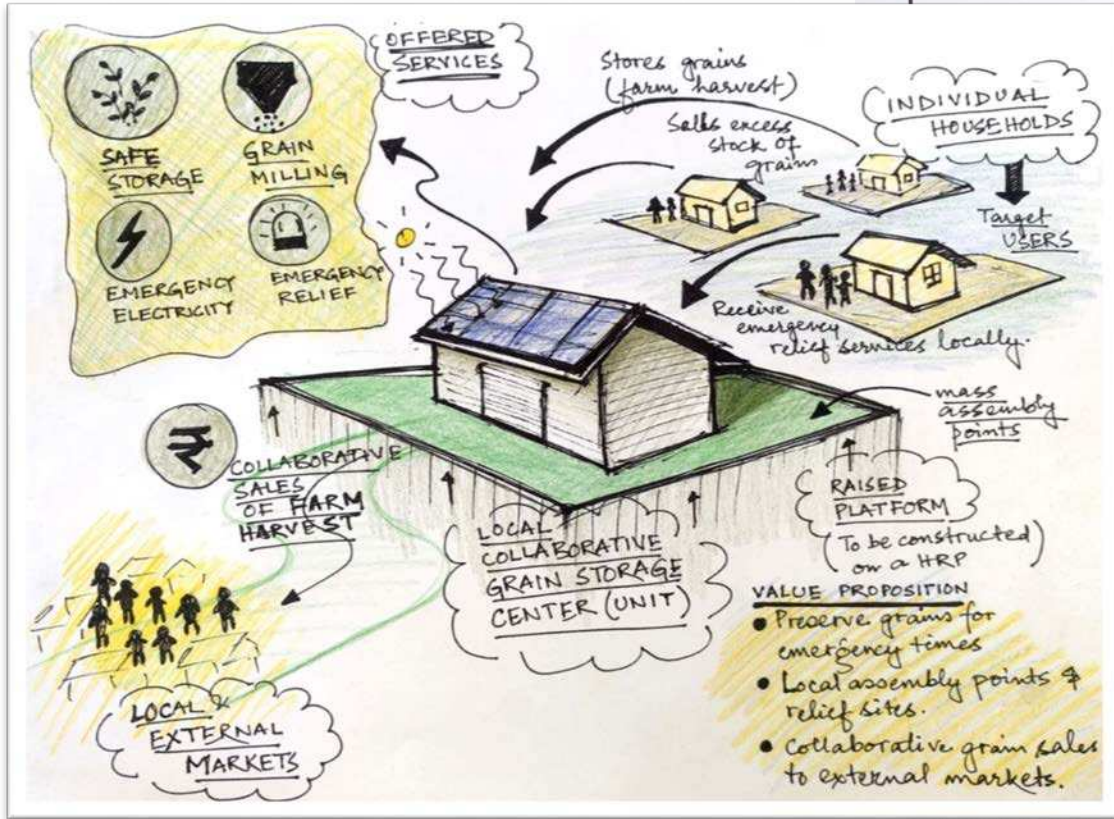 OFFERED
SERVICES
SAFE
STORAGE
GRAIN
MILLING
EMERGENCY
ELECTRICITY
EMERGENCY
RELIEF
Stores grains
(farm harvest)
Sells excess
stock of
grains
INDIVIDUAL
HOUSEHOLDS
Target
USERS
Receive
emergency
relief services locally.
mass
assembly
points
₹
COLLABORATIVE
SALES
OF FARM
HARVEST
LOCAL
COLLABORATIVE
GRAIN STORAGE
CENTER (UNIT)
RAISED
PLATFORM
(To be constructed)
on a HRP
LOCAL &
EXTERNAL
MARKETS
VALUE PROPOSITION
• Preserve grains for
emergency times
• Local assembly points &
relief sites.
• Collaborative grain sales
to external markets.